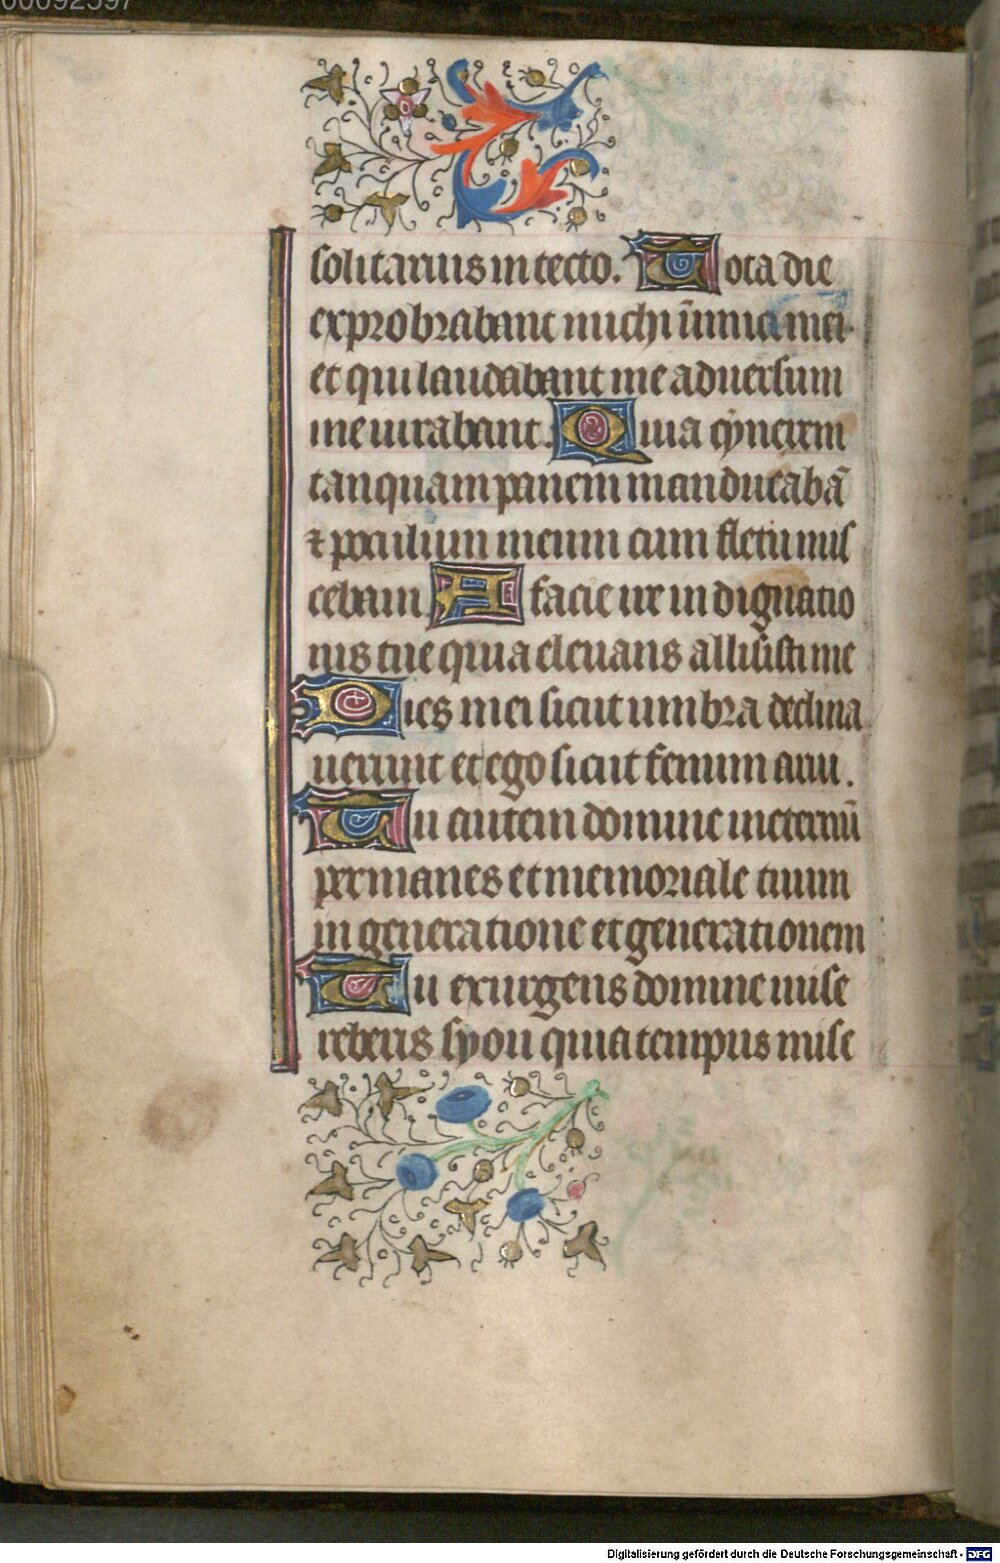 00092597
solitarius in tecto. Tota die
exprobrabant michi inimici mei
et qui laudabant me aduersum
me iurabant. Quia cynerem
tanquam panem manducabā
⁊ poculum meum cum fletu mis
cebam A facie ire indignatio
nis tue quia eleuans allisisti me
Dies mei sicut umbra declina
uerunt et ego sicut fenum arui.
Tu autem domine ineternū
permanes et memoriale tuum
in generatione et generationem
Tu exurgens domine mise
reberis syon quia tempus mise
Digitalisierung gefördert durch die Deutsche Forschungsgemeinschaft - DFG